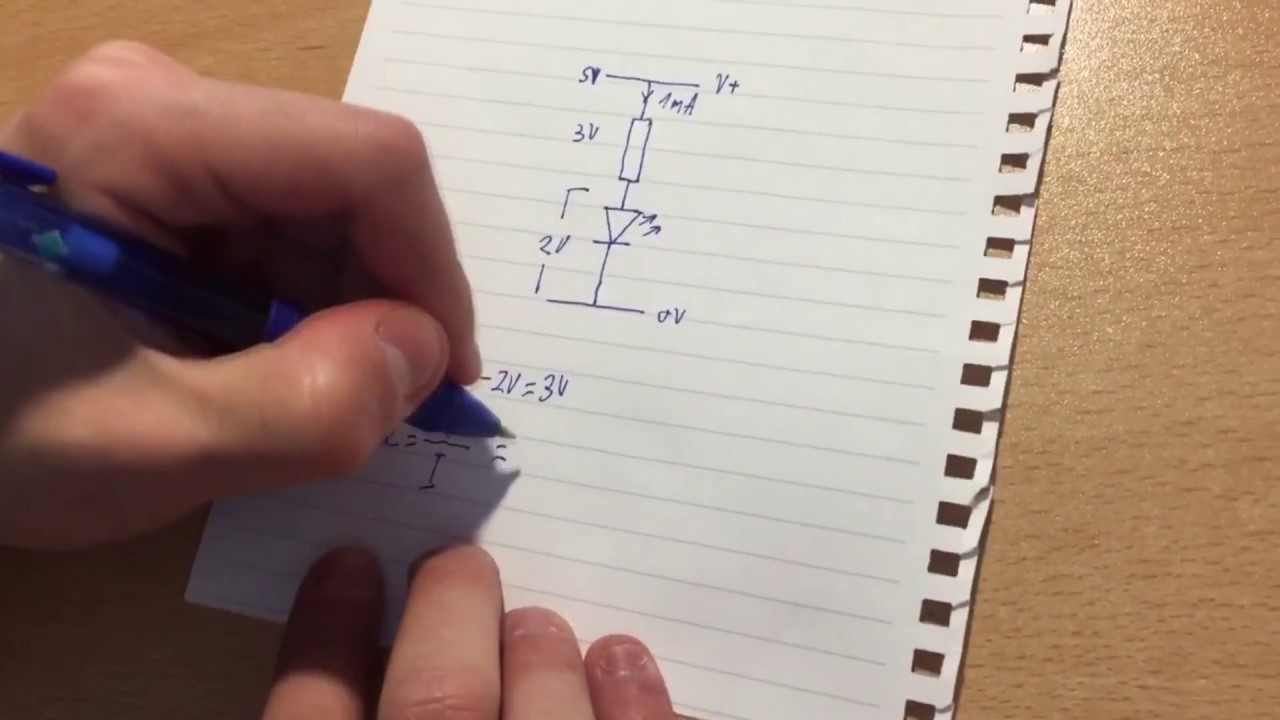 5V V+
1mA
3V
2V
0V
-2V=3V
= I =